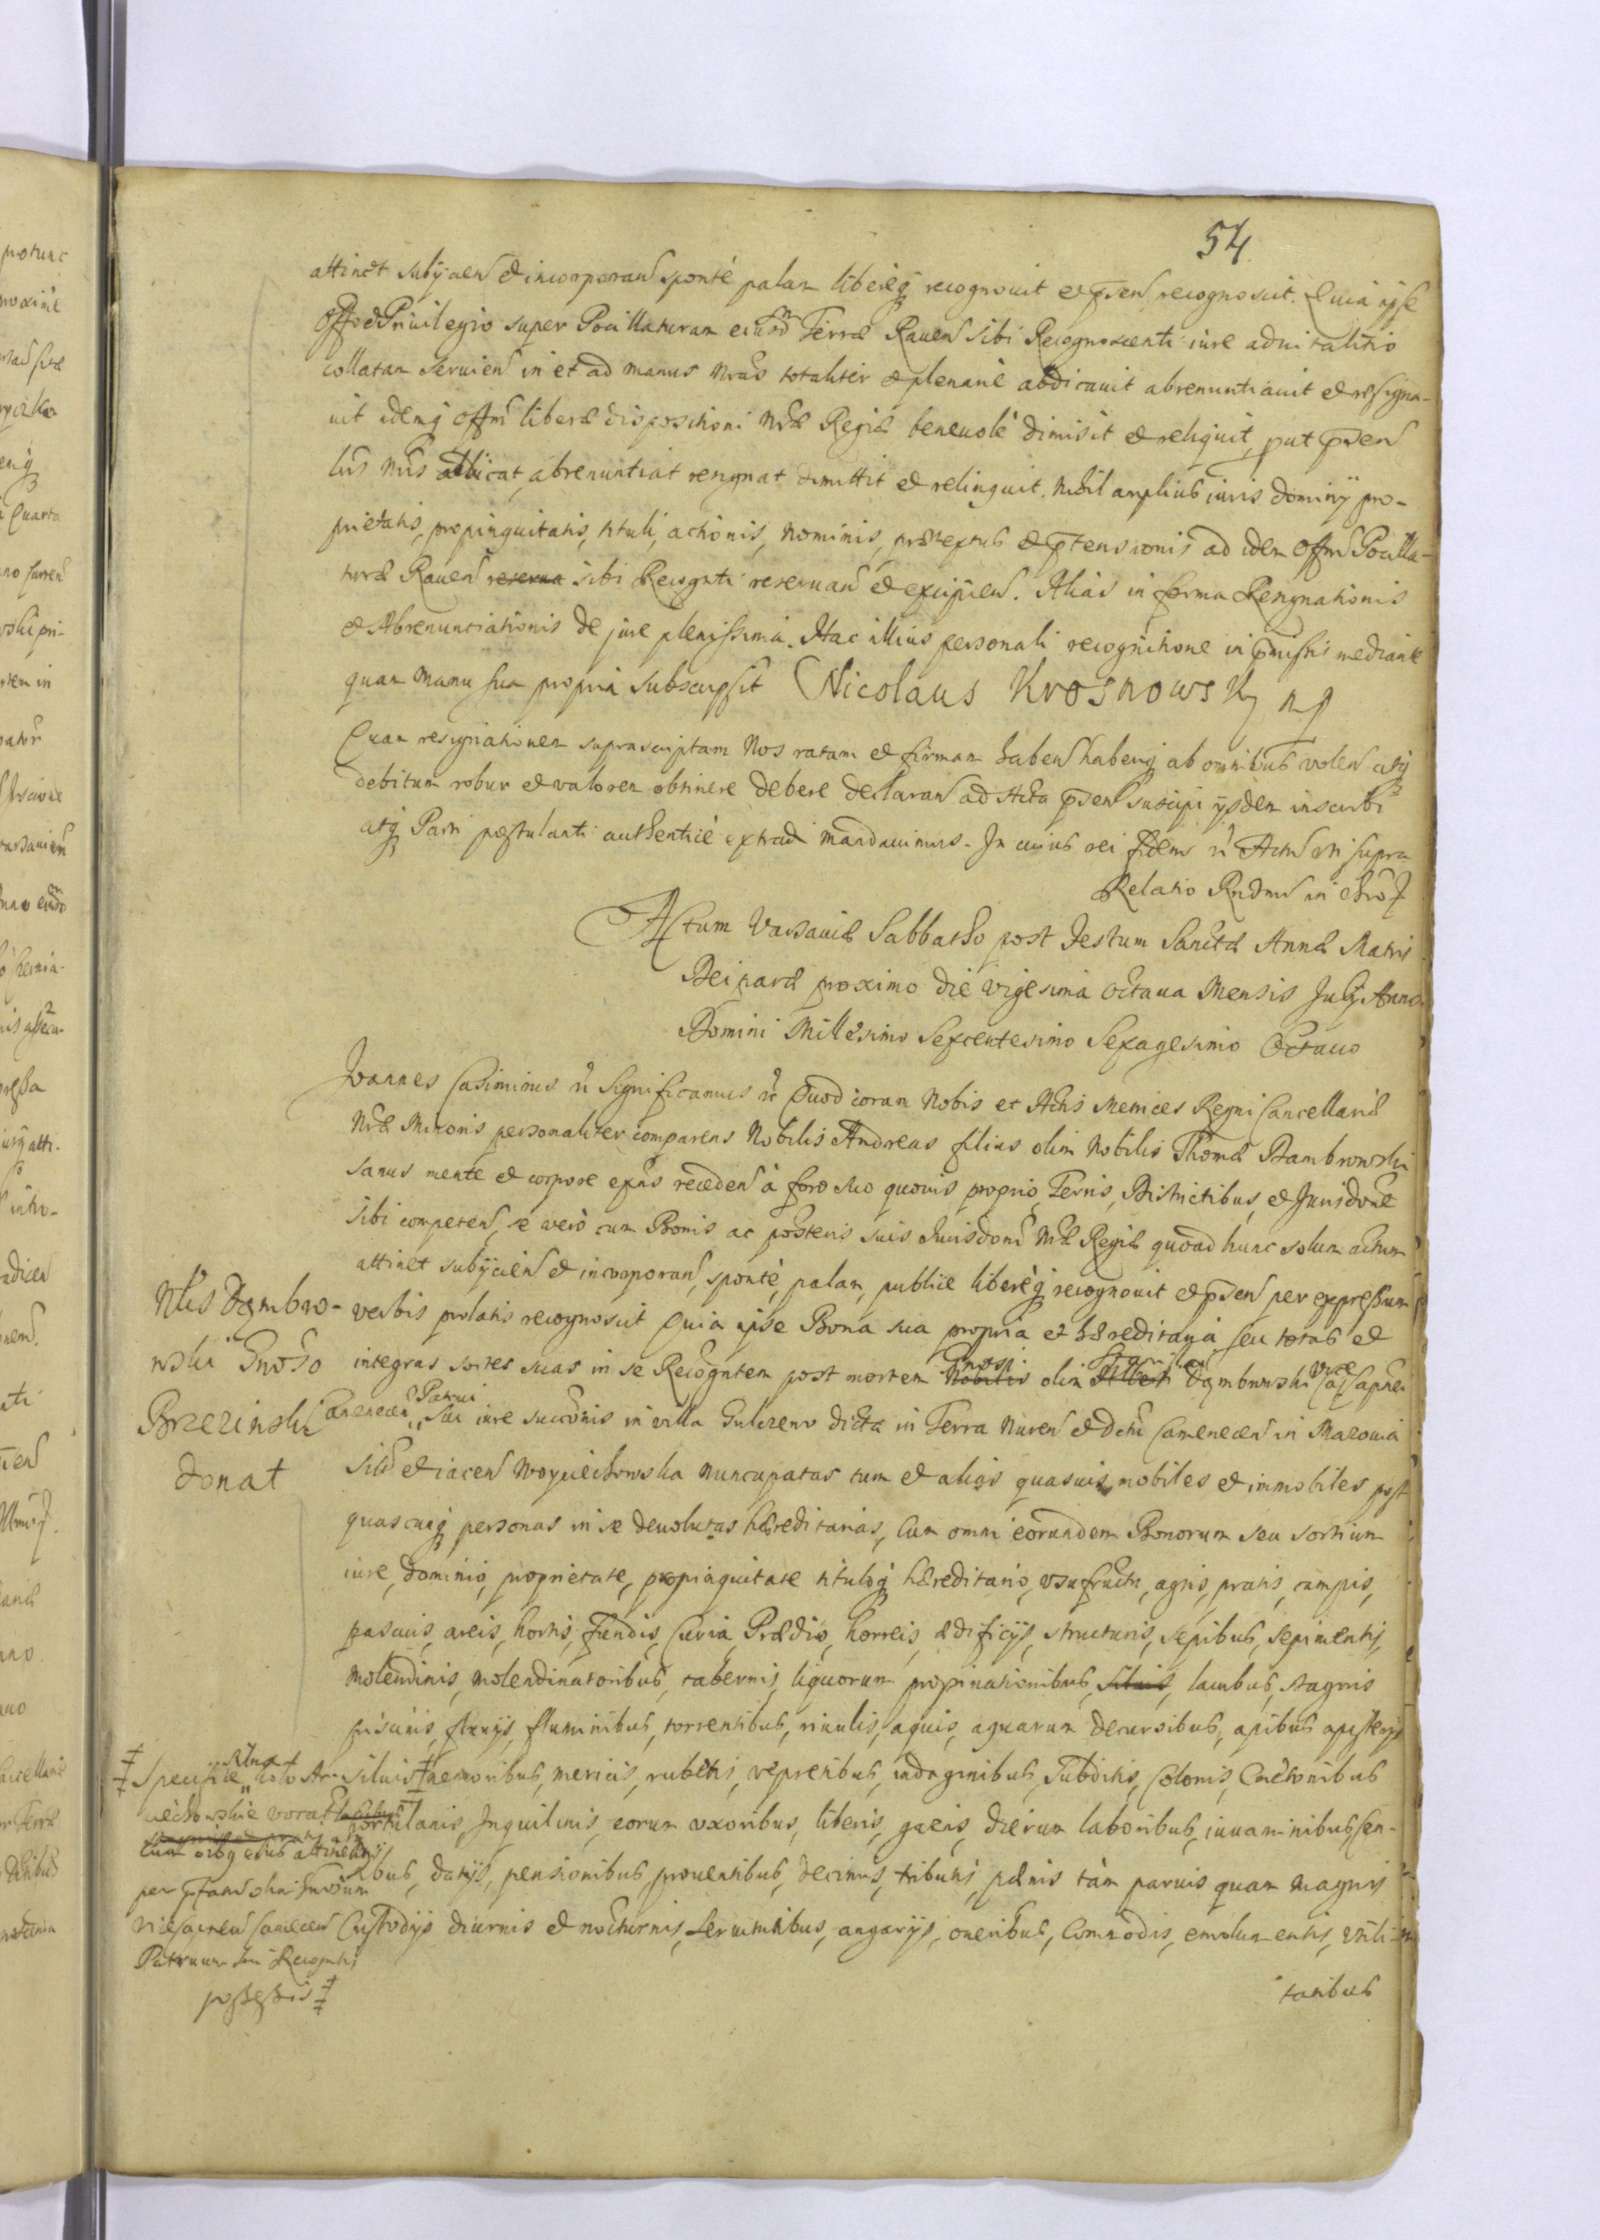 54
attinet subÿcien et incorporan sponte palam libereq recognovit et pnsen recognoscit. Quia ipse
Offo et Privilegio super Pocillaturam eiusdm Terræ Raven sibi Recognoscenti iure advitalitio
collatam servien in et ad manus nras totaliter et plenarie abdicavit abrenuntiavit et resigna-
vit idemq offm liberæ dispositioni nræ Regiæ benevole dimisit et reliquit, put pnsen
lris nris abdicat, abrenuntiat resignat dimittit et relinquit. Nihil amplius iuris dominÿ pro-
prietatis, propinquitatis, tituli, actionis, nominis, prætextus et ptensionis ad idem offm Pocilla-
turæ Raven reserva sibi Recognti reservan et excipien. Alias in forma Resignationis
et Abrenunciationis de jure plenissima. Hac illius personali recognitione in pmissis mediante
quam manu sua propria subscripsit Nicolaus Krosnowsky mp
Quam resignationem suprascriptam Nos ratam et firmam haben haberiq ab omnibus volen atq
debitum robur et valorem obtinere debere declaran ad Acta pnsen suscipi ÿsdem inscribi
atq Parti postulanti authentice extradi mandavimus. In cuius rei fidem &c Actum uti supra
Relatio Rndmi in Chro P
Actum Varsaviæ Sabbatho post Festum Sanctæ Annæ Matris
Deiparæ proximo die vigesima octava Mensis Julÿ Anno
Domini Millesimo Sexcentesimo Sexagesimo Octavo
Joannes Casimirus &c Significamus &c Quod coram Nobis et Actis Metrices Regni Cancellariæ
Nræ Minoris personaliter comparens Nobilis Andreas filius olim Nobilis Thomæ Dambrowski
sanus mente et corpore exns receden a foro suo quovis proprio, Terris, Districtibus, et Jurisdone
sibi competen, se vero cum Bonis ac posteris suis Jurisdoni Nræ Regiæ quoad hunc solum actum
attinet subÿcien et incorporan, sponte, palam, publice libereq recognovit et pnsen per expressum
Nlis Dambro-
wski Gnoso
Brzezinski
donat
verbis prolatis recognoscit Quia ipse Bona sua propria et hæreditaria seu totas et
integras sortes suas in se Recogntem post mortem Nobilis Gnosi olim Dąmbrowski Vice Capnei
Camenecen Patrui sui iure successionis in villa Gulczewo dicta in Terra Nuren et Dctu Camenecen in Mazovia
sitis et iacen Woyciechowska nuncupatas tum et alias quasvis mobiles et immobiles post
quascunq personas in se devolutas hæreditarias, Cum omni eorundem Bonorum seu sortium
iure, dominio, proprietate, propinquitate tituloq hæreditario, usufructu, agris, pratis, campis,
pascuis, areis, hortis, fundis, Curia, Prædio, horreis, ædificÿs, structuris, sepibus, sepimentis,
molendinis, molendinatoribus, tabernis, liquorum propinationibus, silvis, lacubus, stagnis
piscinis, fluvÿs, fluminibus, torrentibus, rivulis, aquis, aquarum decursibus, apibus
silvis ‡ nemoribus, mericis, rubetis, vepretibus, indaginibus, Subditis, Colonis, Cmetonibus
hortulanis, Inquilinis, eorum uxoribus, liberis, gazis, dierum laboribus, iuvaminibus, Cen-
sibus, datÿs, pensionibus proventibus, decimis, tributis, pænis tam parvis quam magnis
Custodÿs diurnis et nocturnis, servitutibus, angarÿs, oneribus, Commodis, emolumentis, utili-
tatibus
‡ Specifice
cum oibq eius attinentÿs
per olim Gnosum
Camenecen
Patruum sui Recogntis
possessis ‡